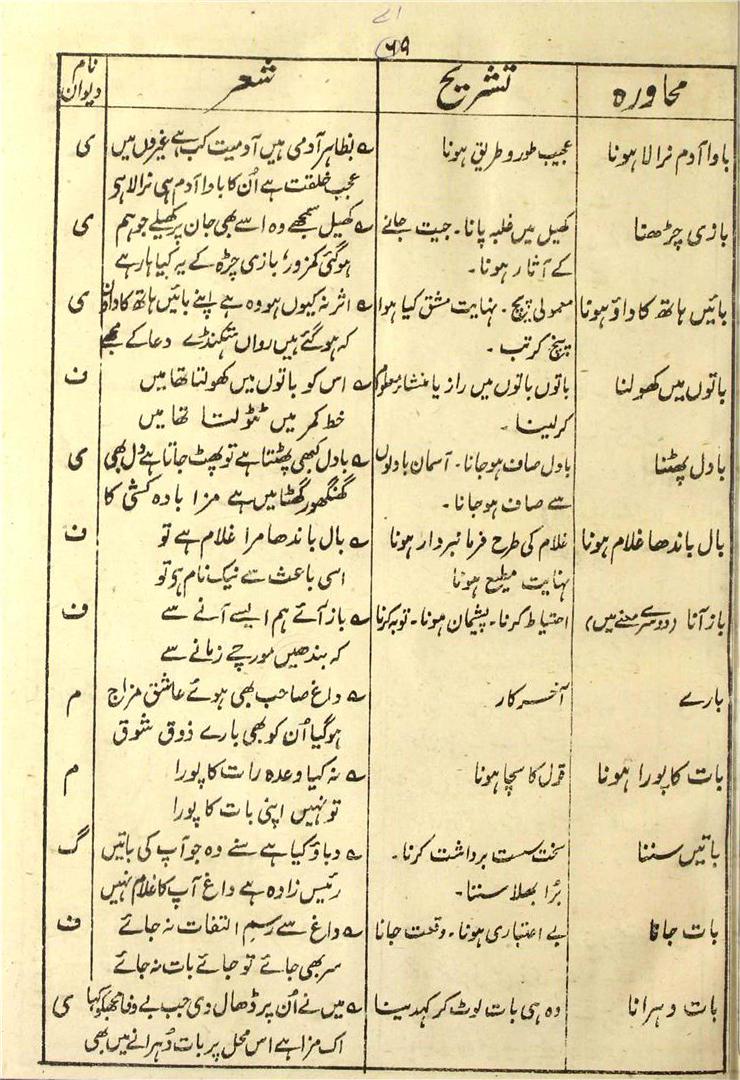 ۶۹
محاورہ تشریح شعر نام دیوان
باوا آدم نرالا ہونا عجیب طور و طریق ہونا ؎ بظاہر آدمی ہیں آدمیت کب ہے غیروں میں ی
عجب خلقت ہے اُن کا باوا آدم ہی نرالا ہو
بازی چڑھنا کھیل میں غلبہ پانا۔ جیت جانے ؎ کھیل سمجھے وہ اسے بھی جان پر کھیلے جو ہم ی
کے آثار ہونا۔ ہوگئی کمزور، بازی چڑھ کے یہ کیا ہار ہے
بائیں ہاتھ کا داؤ ہونا معمولی پیچ۔ نہایت مشق کیا ہوا ؎ اثر نہ کیوں ہو وہ ہے اپنے بائیں ہاتھ کا داؤں ی
پیچ کرتب۔ کہ ہوگئے ہیں رواں ہتکنڈے دعا کے مجھے
باتوں میں کھولنا باتوں باتوں میں راز یا منشا معلوم ؎ اس کو باتوں میں کھولتا تھا میں ف
کرلینا۔ خط کمر میں ٹٹولتا تھا میں
بادل پھٹنا بادل صاف ہوجانا۔ آسمان بادلوں ؎ بادل کبھی پھٹتا ہے تو پھٹ جاتا ہے دل بھی ی
سے صاف ہوجانا۔ گھنگھور گھٹا میں ہے مزا بادہ کشی کا
بال باندھا غلام ہونا غلام کی طرح فرمانبردار ہونا ؎ بال باندھا مرا غلام ہے تو ف
نہایت مطیع ہونا اسی باعث سے نیک نام ہو تو
باز آنا (دوسرے معنے میں) احتیاط کرنا۔ پشیمان ہونا۔ توبہ کرنا ؎ باز آئے ہم ایسے آنے سے ف
کہ بندھیں مورچے زمانے سے
بارے آخر کار ؎ داغ صاحب بھی ہوئے عاشق مزاج م
ہوگیا اُن کو بھی بارے ذوق شوق
بات کا پورا ہونا قول کا سچا ہونا ؎ نہ کیا وعدہ رات کا پورا م
تو نہیں اپنی بات کا پورا
باتیں سننا سخت سست برداشت کرنا۔ ؎ دباؤ کیا ہے سنے وہ جو آپ کی باتیں گ
بُرا بھلا سننا۔ رئیس زادہ ہے داغ آپ کا غلام نہیں
بات جانا بے اعتباری ہونا۔ وقعت جانا ؎ داغ سے رسمِ التفات نہ جائے ف
سر بھی جائے تو جائے بات نہ جائے
بات دہرانا وہ ہی بات لوٹ کر کہدینا ؎ میں نے اُن پر ڈھال دی جب بے وفا مجھکو کہا ی
اک مزا ہے اس محل پر بات دُہرانے میں بھی